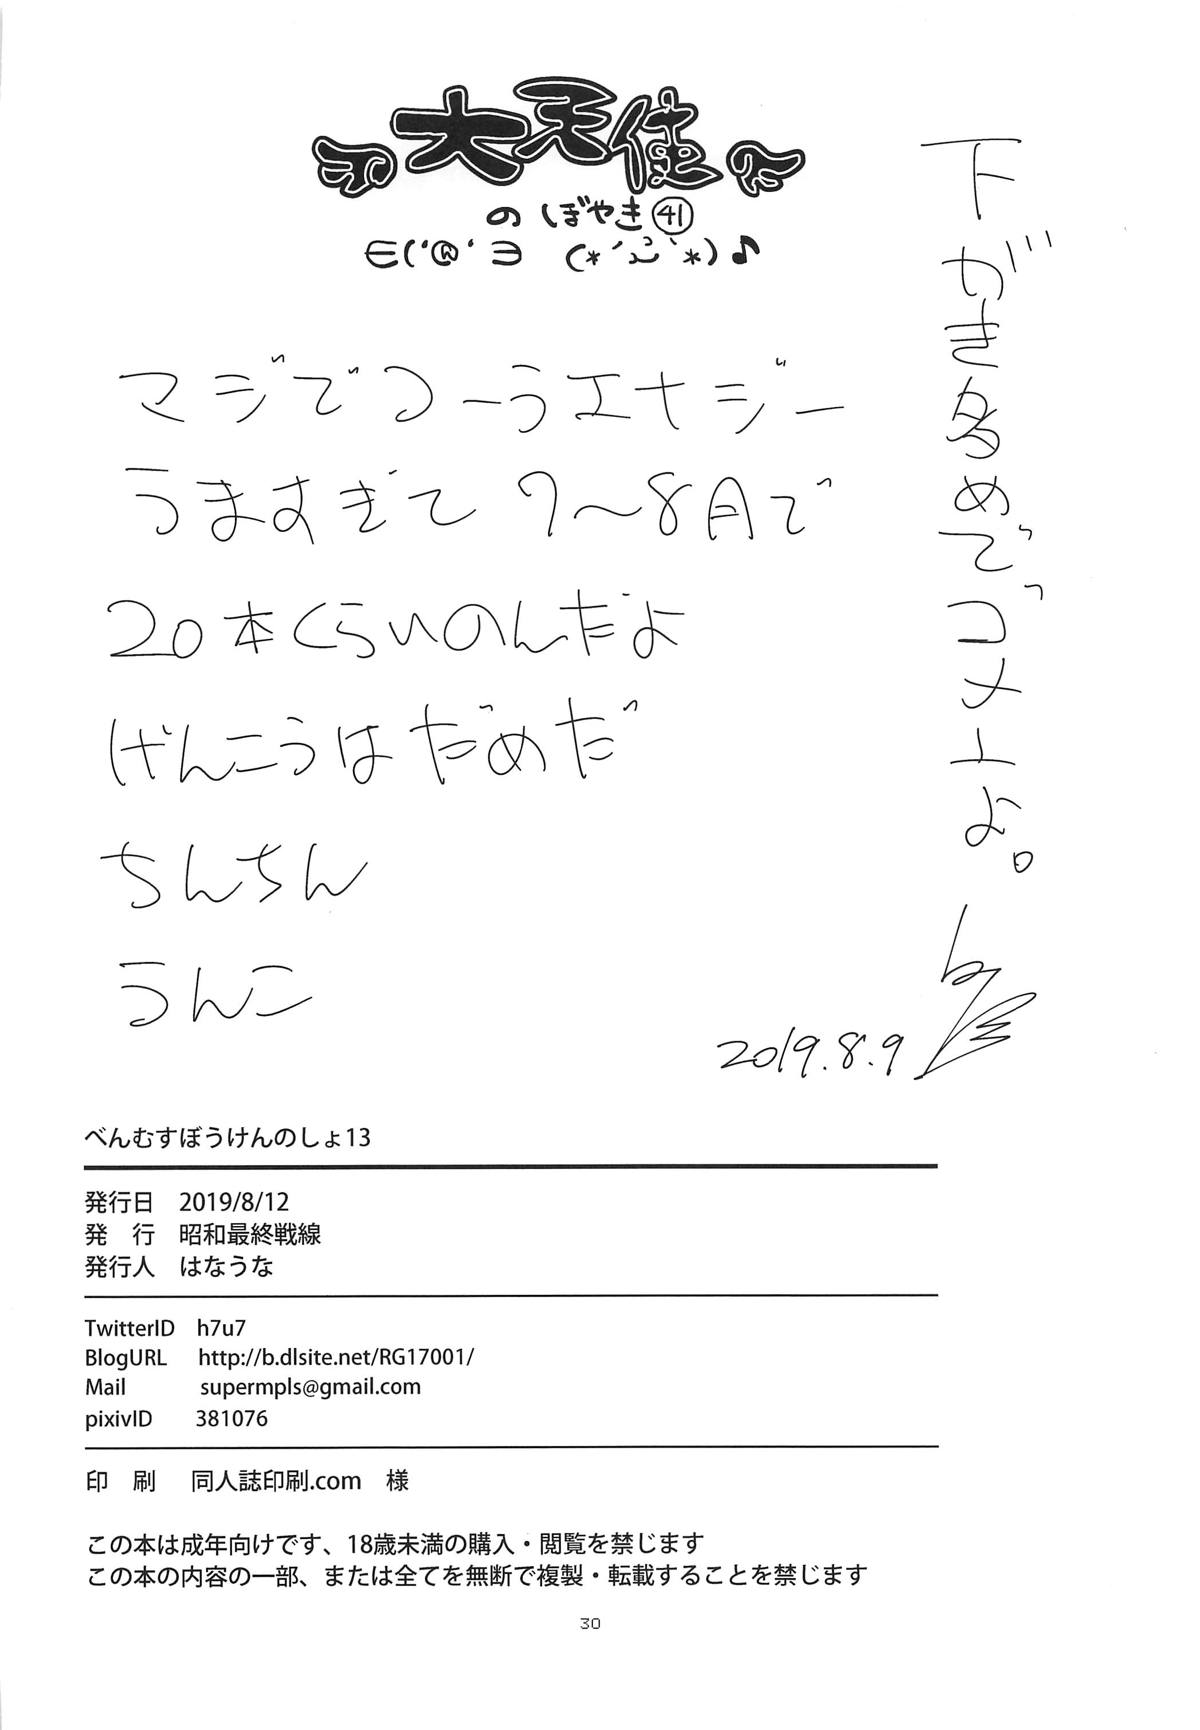 大天使
のぼやき㊶
∈('@'∋ (*´ω`*)♪
下がき多めでゴメンよ。
マジでつーうエナジー
うますぎて 7〜8月で
20本くらいのんだよ
げんこうはだめだ
ちんちん
うんこ
2019.8.9
べんむすぼうけんのしょ13
発行日 2019/8/12
発 行 昭和最終戦線
発行人 はなうな
TwitterID h7u7
BlogURL http://b.dlsite.net/RG17001/
Mail supermpls@gmail.com
pixivID 381076
印 刷 同人誌印刷.com 様
この本は成年向けです、18歳未満の購入・閲覧を禁じます
この本の内容の一部、または全てを無断で複製・転載することを禁じます
30